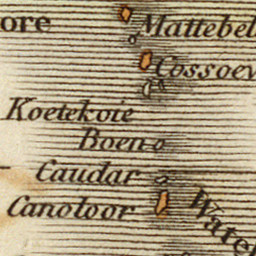 ore
Mattebel
Cossoev
Koetekoie
Boen
Caudar
Canoloor
Water